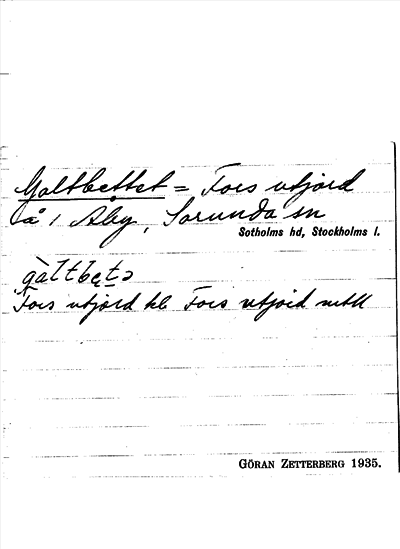 Galtbettet = Fors utjord
å 1 Åby, Sorunda sn
Sotholms hd, Stockholms l.
gàltbetə
Fors utjord kb Fors utjord mtll
GÖRAN ZETTERBERG 1935.